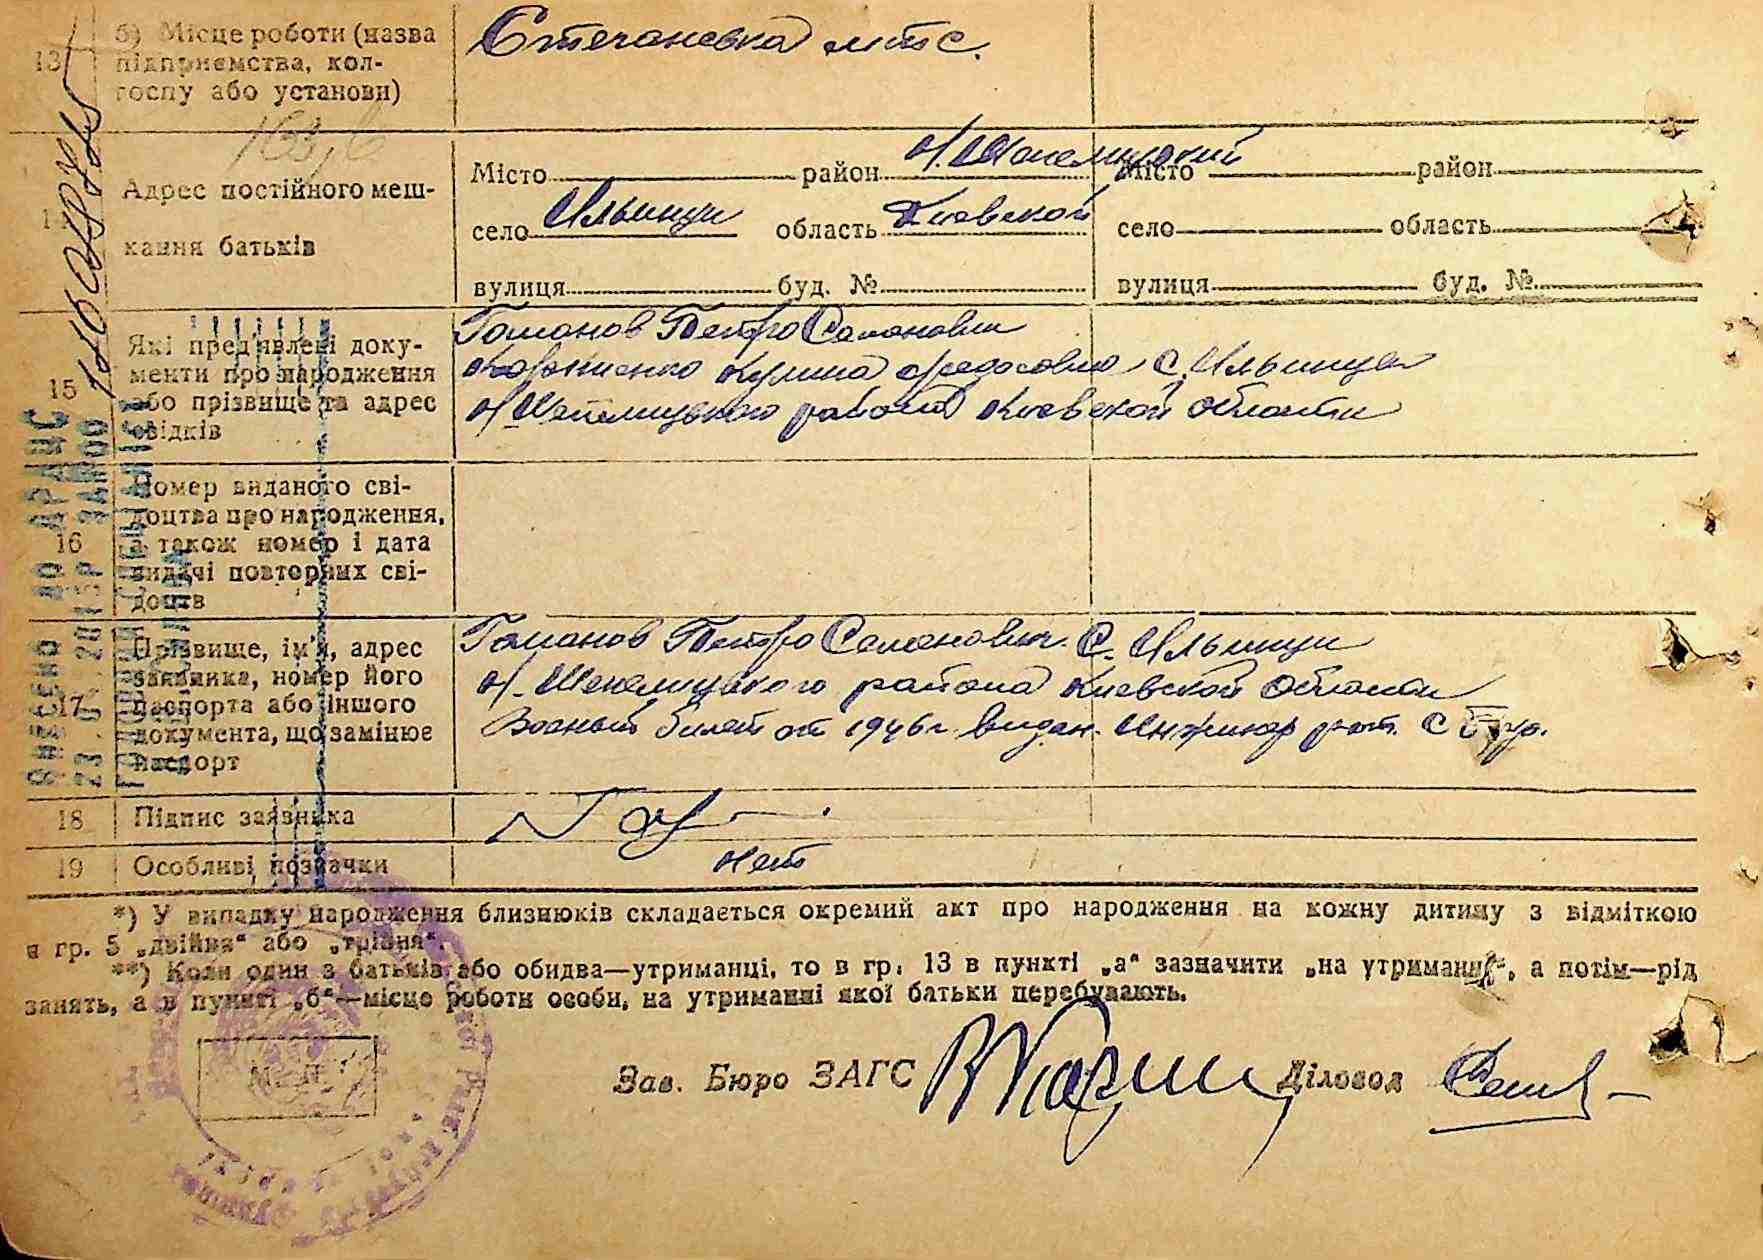 13
б) Місце роботи (назва
підприємства, кол-
госпу або установи)
Стечановка мтс.
14
Адрес постійного меш-
кання батьків
Місто район Н. Шепелицкий
село Ильинци область Киевской
вулиця буд. №
Місто район
село область
вулиця буд. №
15
Які пред'явлені доку-
менти про народження
або прізвище та адрес
свідків
Гаманов Петро Семанович
Корниенко Кулина Федосовна С. Ильинцы
Н Шепелицького района Киевской области
16
Номер виданого сві-
доцтва про народження,
а також номер і дата
видачі повторних сві-
доцтв
17
Прізвище, ім'я, адрес
заявника, номер його
паспорта або іншого
документа, що замінює
паспорт
Гаманов Петро Семанович. С. Ильинци
Н. Шепелицького района Киевской области
Военый билет от 1946 г. видан.
18
Підпис заявника
19
Особливі позначки
нет
*) У випадку народження близнюків складається окремий акт про народження на кожну дитину з відміткою
в гр. 5 „двійня“ або „трійня“.
**) Коли один з батьків або обидва—утриманці, то в гр. 13 в пункті „а“ зазначити „на утриманні“, а потім—рід
занять, а в пункті „б“—місце роботи особи, на утриманні якої батьки перебувають.
Зав. Бюро ЗАГС Діловод
ВНЕСЕНО ДО ДРАЦС